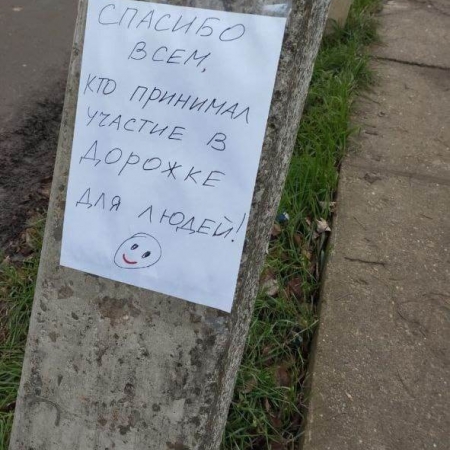 СПАСИБО
ВСЕМ,
КТО ПРИНИМАЛ
УЧАСТИЕ В
ДОРОЖКЕ
ДЛЯ ЛЮДЕЙ!